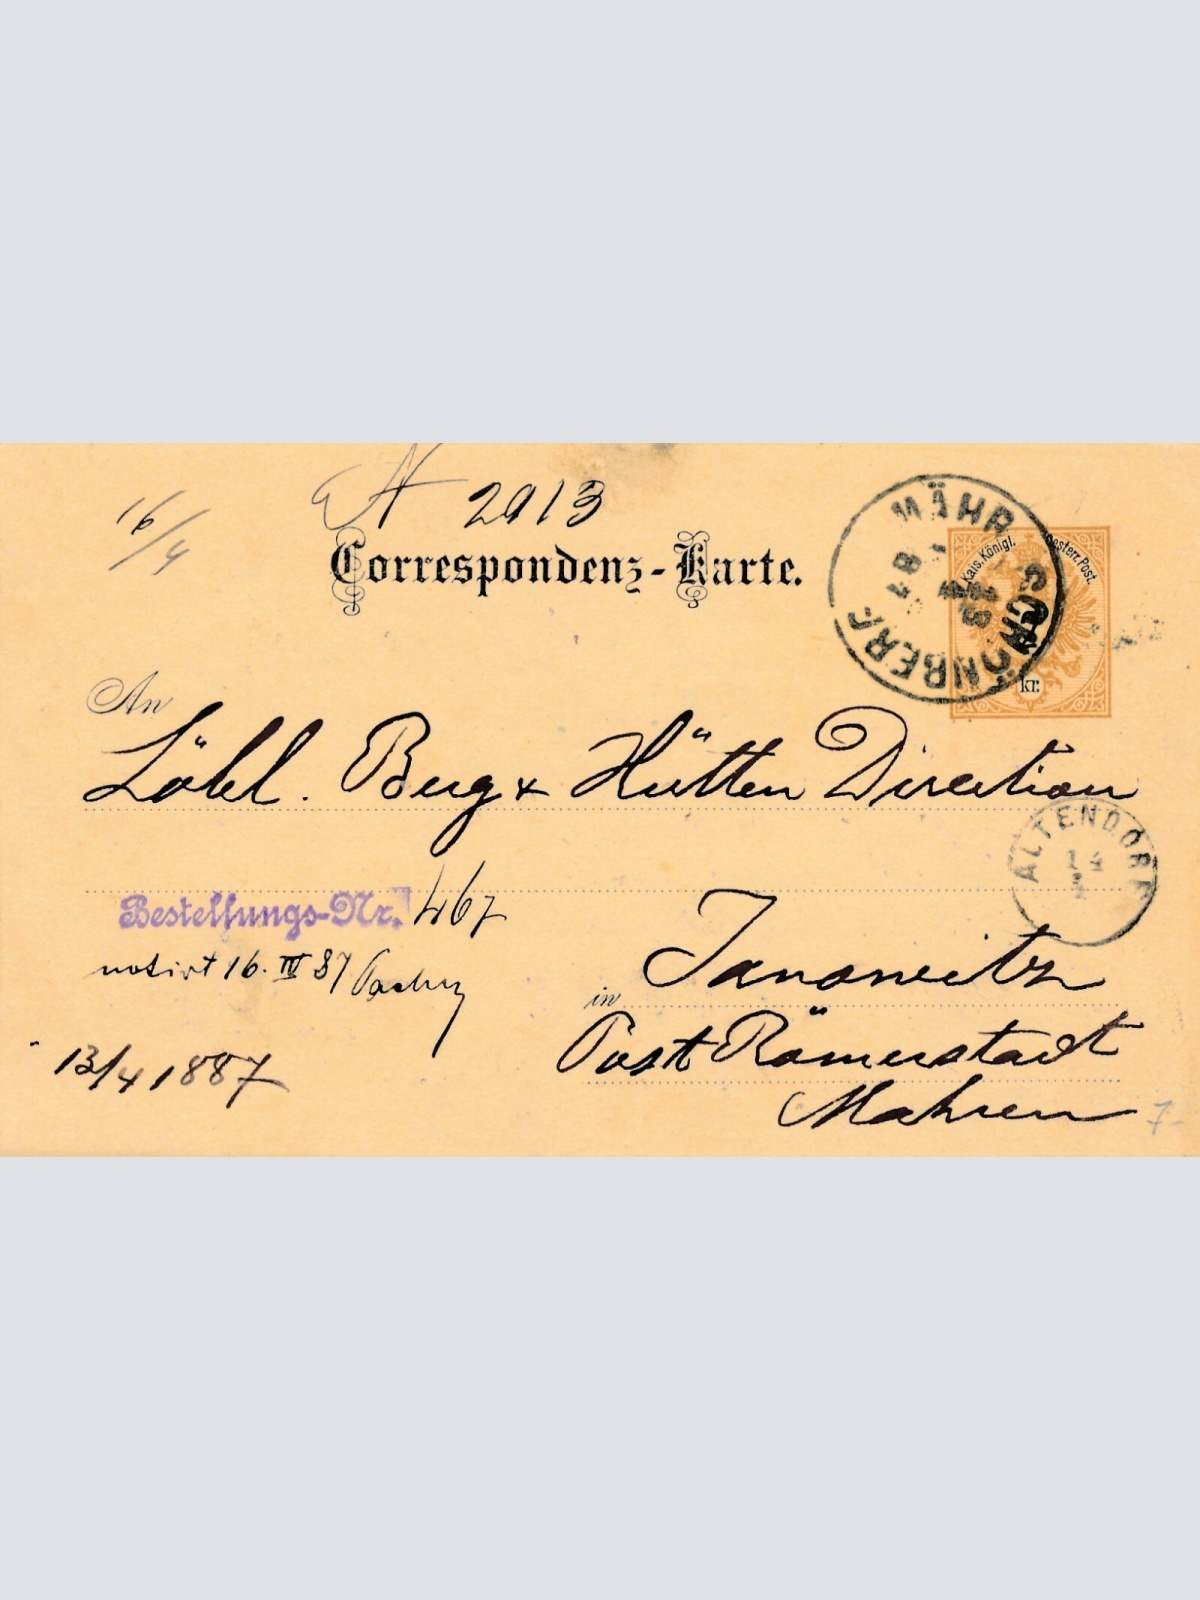 16/4
2913
Correspondenz-Karte.
MÄHR. SCHÖNBERG
13 4 87
Kais. Königl. Oesterr. Post.
kr.
An
Löbl. Berg & Hütten Direction
ALTENDORF
14
Bestellungs-Nr. 467
notirt 16. IV 87
in Janowitz
Post Römerstadt
13/4 1887
Mahren
7-